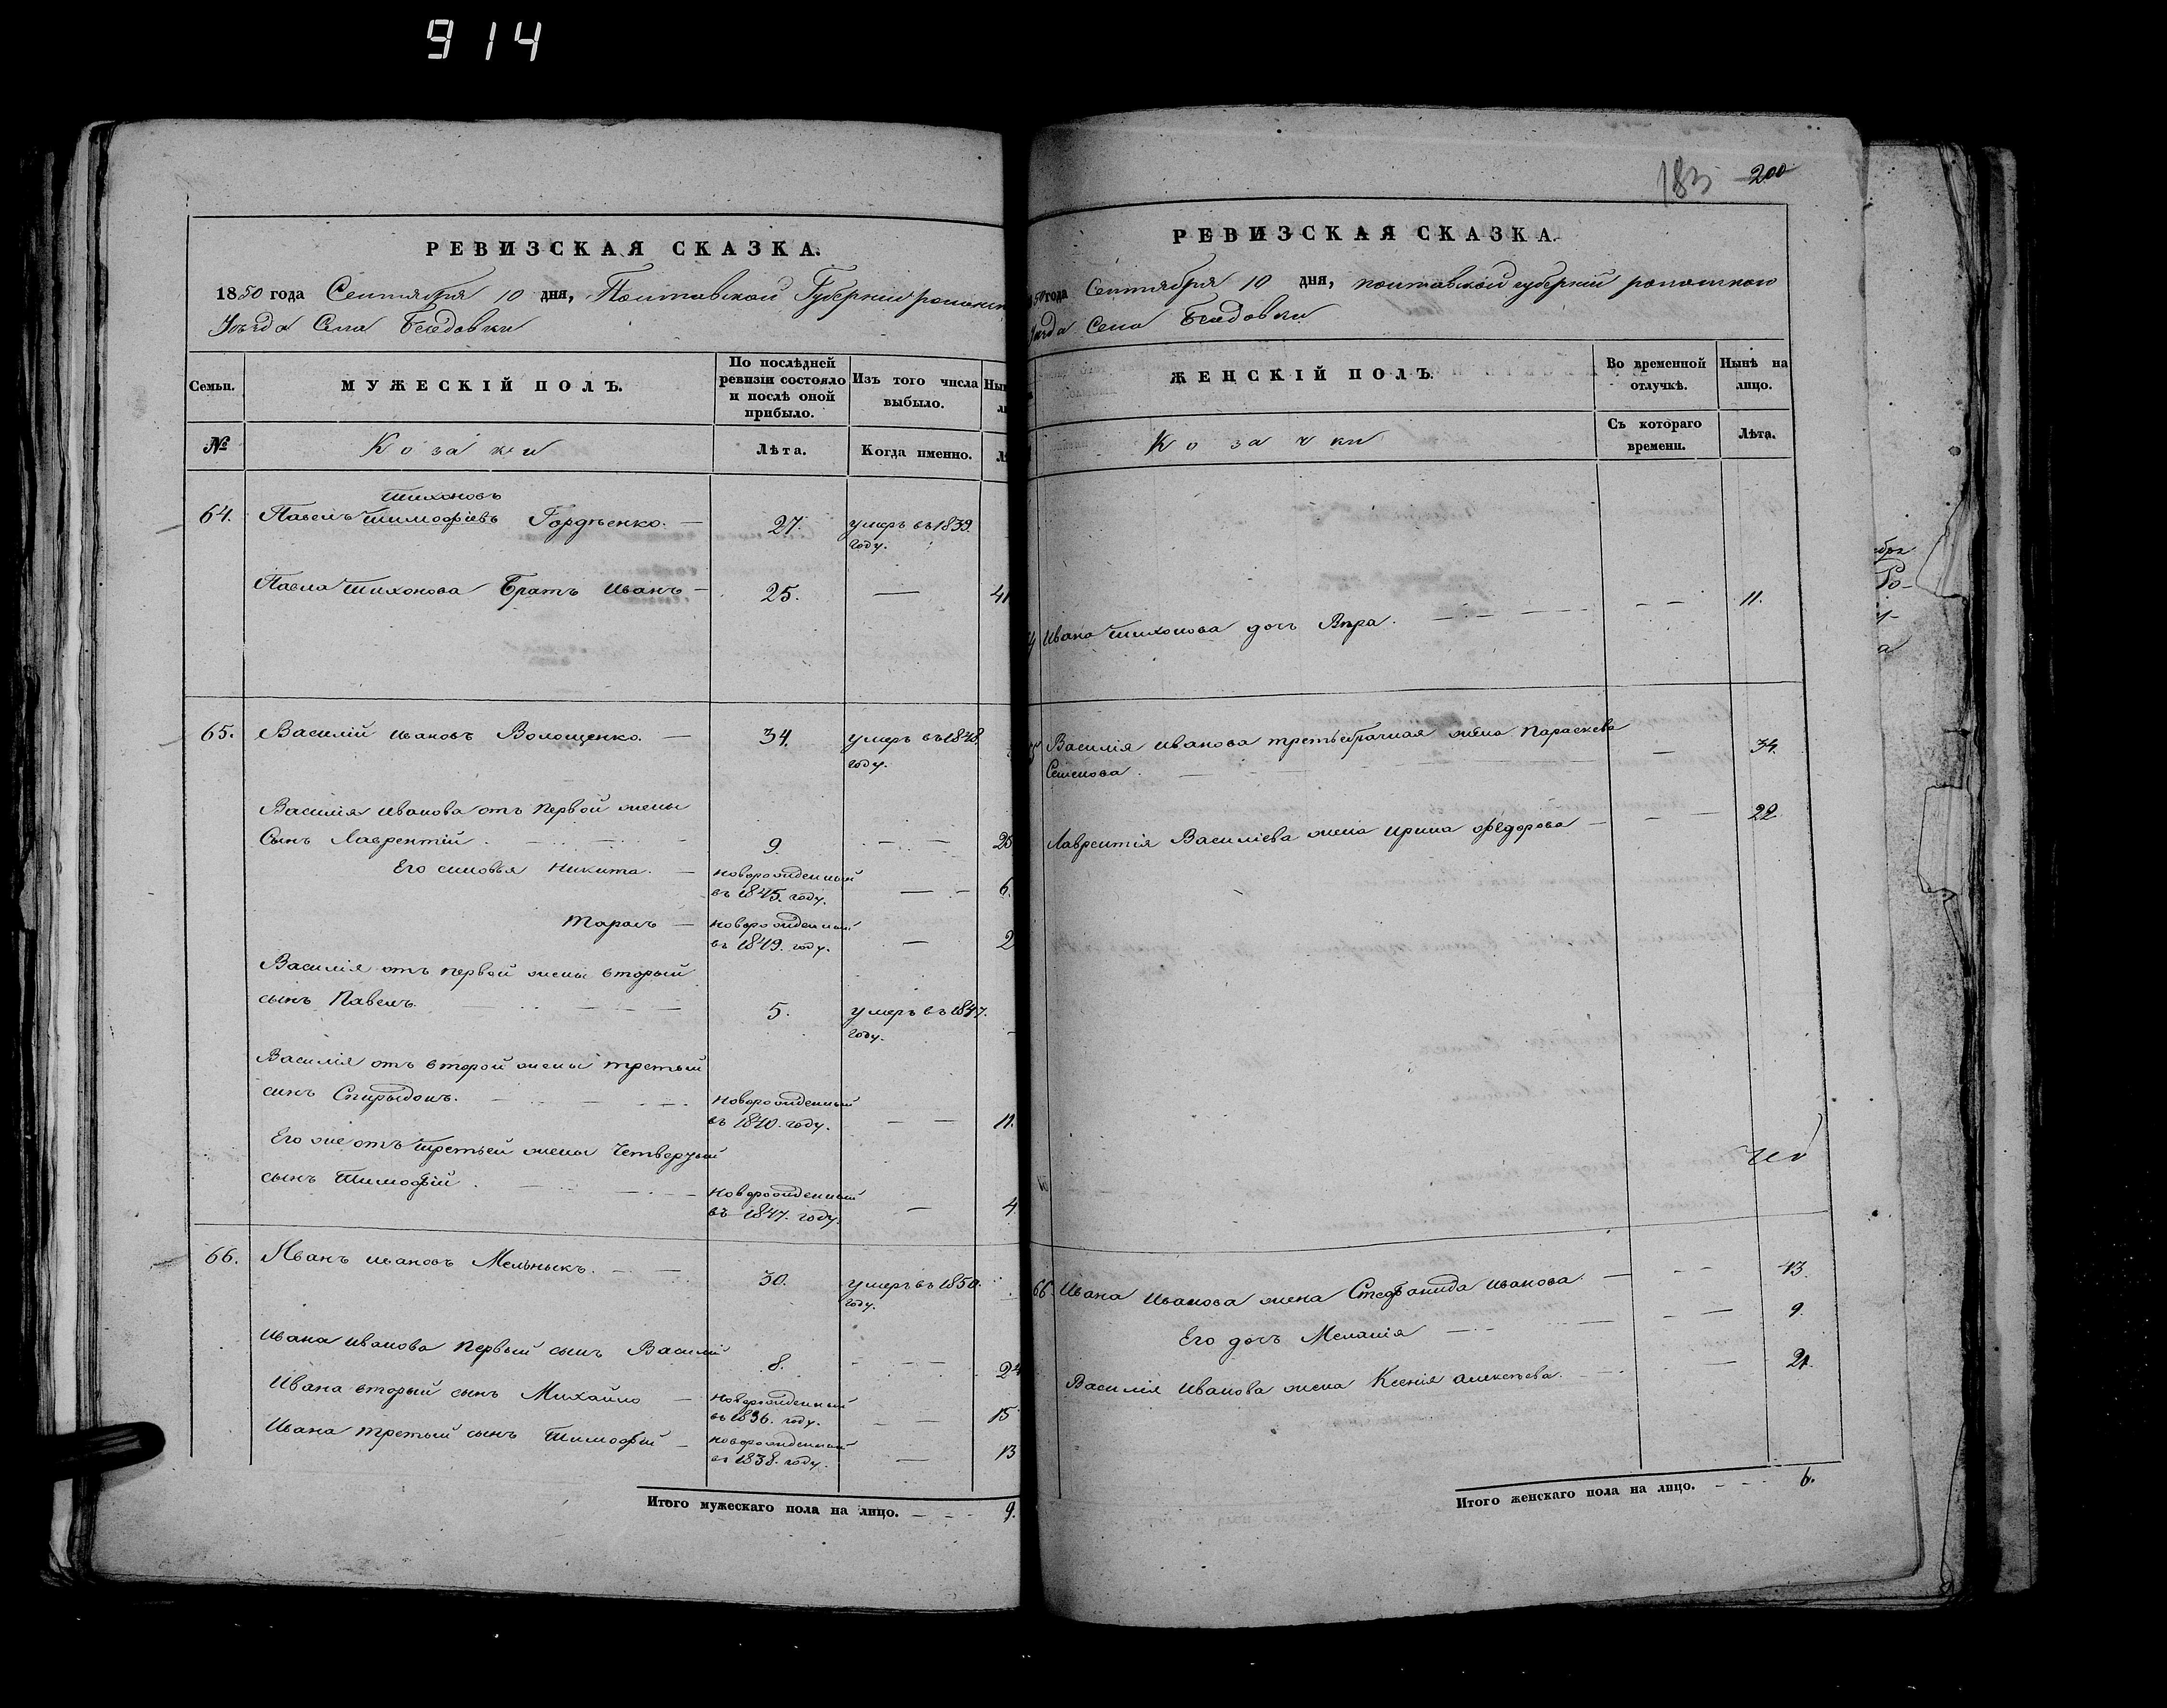 914
РЕВИЗСКАЯ СКАЗКА.
1850 года Сентября 10 дня, Полтавской Губернии
Уезда Села Беедовки
Семьи.
МУЖЕСКІЙ ПОЛЪ.
По послѣдней ревизіи состояло и послѣ оной прибыло.
Изъ того числа выбыло.
№
Козаки
Лѣта.
Когда именно.
Тихоновъ
64. Павелъ Тимофіевъ Гордѣенко. — 27. умеръ въ 1839.
году.
Павла Тихонова Братъ Иванъ — 25. — 41
65. Василій Ивановъ Волощенко. — 34. умеръ въ 1848.
году.
Василія Иванова отъ первой жены
Сынъ Лаврентій. 9. — —
Его сыновья Никита. — новорожденный
въ 1845. году. — — 6.
Тарасъ — новорожденный
въ 1849. году. — 2
Василія отъ первой жены вторый
сынъ Павелъ. 5. умеръ въ 1847.
году.
Василія отъ второй жены третый
сынъ Спиридонъ. новорожденный
въ 1840. году. — — 11.
Его же отъ третьей жены Четвертый
сынъ Тимофій. новорожденный
въ 1847. году. — 4.
66. Иванъ Ивановъ Мельныкъ. — 30. умеръ въ 1850.
году.
Ивана Иванова первый сынъ Василій 8. 24
Ивана вторый сынъ Михайло — новорожденный
въ 1836. году. — — 15
Ивана третый сынъ Тимофій — новорожденный
въ 1838. году. — 13
Итого мужескаго пола на лицо. — — 9.
183 200
РЕВИЗСКАЯ СКАЗКА.
50 года Сентября 10 дня, полтавской губерніи
Села Беедовки
ЖЕНСКІЙ ПОЛЪ.
Во временной отлучкѣ.
Нынѣ на лицо.
Козачки
Съ котораго времени.
Лѣта.
Ивана Тихонова дочь Вѣра. — — — 11.
Василія Иванова третьебрачная жена Параскева — 34.
Семенова.
Лаврентія Василіева жена Ирина Федорова — — — 22.
66. Ивана Иванова жена Стефанида Иванова. — — — 43.
Его дочь Меланія — — — 9.
Василія Иванова жена Ксенія Алексѣева. — — 21.
Итого женскаго пола на лицо. — — 6.